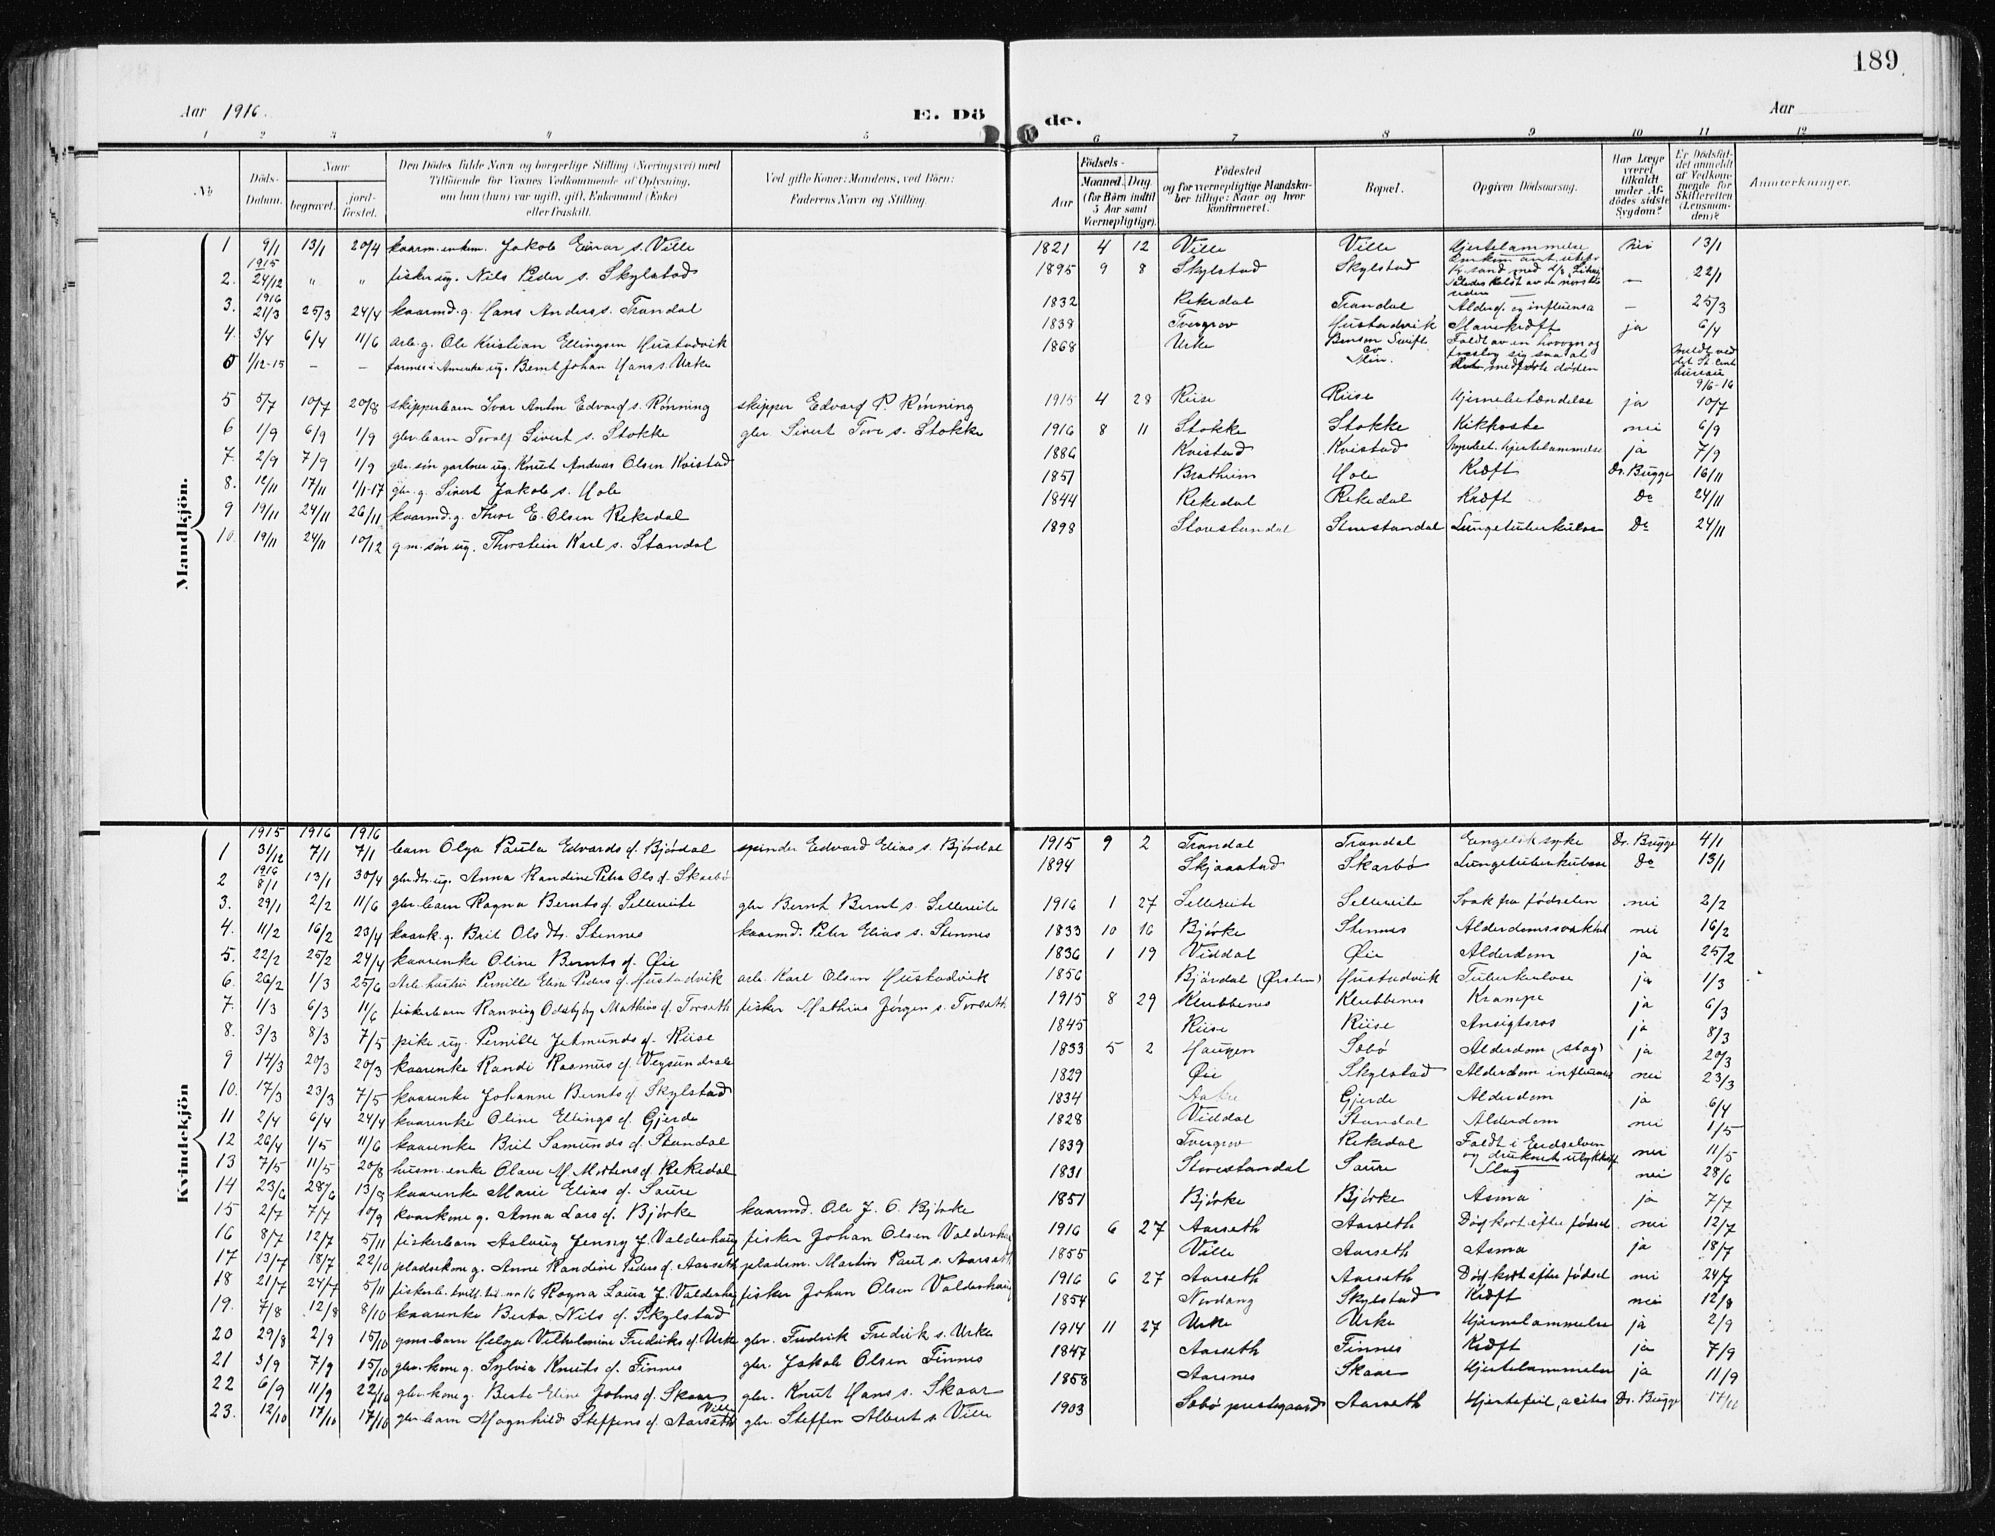 189
Aar 1916.
E. Döde.
Aar
1 2 3 4 5 6 7 8 9 10 11 12
No
Döds-Datum.
Naar
begravet.
jordfæstet.
Den Dödes fulde Navn og borgerlige Stilling (Næringsvei) med Tilföiende for Voxnes Vedkommende af Oplysning, om han (hun) var ugift, gift, Enkemand (Enke) eller fraskilt.
Ved gifte Koner: Mandens, ved Börn: Faderens Navn og Stilling.
Födsels-
Aar
Maaned. Dag
(for Börn indtil 5 Aar samt Værnepligtige).
Födested og for værnepligtige Mandskaber tillige: Naar og hvor konfirmeret.
Bopæl.
Opgiven Dödsaarsag.
Har Læge været tilkaldt under Afdödes sidste Sygdom?
Er Dödsfaldet anmeldt af Vedkommende for Skifteretten (Lensmanden)?
Anmærkninger.
Mandkjön.
1 9/1 13/1 20/4 kaarm. enkm. Jakob Einar s. Ville 1821 4 12 Ville Ville Hjertelammelse nei 13/1
2. 1915 24/12 " " fisker ug. Nils Peder s. Skylstad 1895 9 8 Skylstad Skylstad — 22/1
3. 1916 21/3 25/3 24/4 kaarmd. g. Hans Anders s. Trandal 1832 Rekedal Trandal Alderd. og influensa — 25/3
4. 3/4 6/4 11/6 arb. g. Ole Kristian Ellingsen Hustadvik 1838 Tvergrov Hustadvik Mavekræft ja 6/4
0 1/12-15 — — farmer i Amerika ug. Bernt Johan Hans s. Urke 1868 Urke Benson Swift Co Min. Faldt av en hovogn og slog sig saa at det medførte døden 9/6-16
5 5/7 10/7 20/8 skipperbarn Ivar Anton Edvard s. Rønning skipper Edvard P. Rønning 1915 4 28 Riise Riise Hjernebetændelse ja 10/7
6 1/9 6/9 1/9 gbr. barn Toralf Sivert s. Stokke gbr. Sivert Tore s. Stokke 1916 8 11 Stokke Stokke Kikhoste nei 6/9
7. 2/9 7/9 1/9 gbr. søn gartner ug. Knut Andreas Olsen Kvistad 1886 Kvistad Kvistad Hjertelammelse ja 7/9
8. 12/11 17/11 1/1-17 gbr. g. Sivert Jakob s. Hole 1851 Bratheim Hole Kræft Dr. Bugge 16/11
9 19/11 24/11 26/11 kaarmd. g. Thore E. Olsen Rekedal 1844 Rekedal Rekedal Kræft Do 24/11
10. 19/11 24/11 10/12 g.m. søn ug. Thorstein Karl s. Standal 1898 Storestandal Storestandal Lungetuberkulose Do 24/11
Kvindekjön
1915 1916 1916
1 31/12 7/1 7/1 barn Olga Paula Edvards d. Bjørdal spinder Edvard Elias s. Bjørdal 1915 9 2 Trandal Trandal Engelsk syke Dr. Bugge 4/1
2 1916 8/1 13/1 30/4 gbr. dtr. ug. Anna Randine Petra Ols d. Skarbø 1894 Skjaastad Skarbø Lungetuberkulose Do 13/1
3. 29/1 2/2 11/6 gbr. barn Ragna Bernts d. Sellereite gbr Bernt Bernt s. Sellereite 1916 1 27 Sellereite Sellereite Svak fra fødselen nei 2/2
4. 11/2 16/2 23/4 kaark. g. Brit Ols dtr. Stennes kaarmd. Peter Elias s. Stennes 1833 10 16 Bjørke Stennes Alderdomssvakhet nei 16/2
5. 22/2 25/2 24/4 kaarenke Oline Bernts d. Øie 1836 1 19 Viddal Øie Alderdom ja 25/2
6. 26/2 1/3 25/6 Arb. hustru Pernille Elina Peders d. Hustadvik arb. Karl Olsen Hustadvik 1856 Bjørdal (Ørsten) Hustadvik Tuberkulose ja 1/3
7. 1/3 6/3 11/6 fiskerbarn Ranveig Odsbjby Mathias d. Torseth fisker Mathias Jørgen s. Torseth 1915 8 29 Klubbenes Klubbenes Krampe ja 6/3
8. 3/3 8/3 7/5 pike ug. Pernille Jetmunds d. Riise 1845 Riise Riise Ansigtsros ja 8/3
9 14/3 20/3 20/3 kaarenke Randi Rasmus d. Vegsundsæle 1833 5 2 Haugen Sæbø Alderdom (slag) ja 20/3
10. 17/3 23/3 7/5 kaarenke Johanne Bernts d. Skylstad 1829 Øie Skylstad Alderdom influensa nei 23/3
11 2/4 6/4 24/4 kaarenke Oline Ellings d. Gjerde 1834 Gjerde Alderdom ja 6/4
12 26/4 1/5 11/6 kaarenke Brit Samunds d. Standal 1828 Viddal Standal Alderdom nei 1/5
13 7/5 11/5 20/8 husm. enke Olave M. Mortens d. Rekedal 1839 Tvergrov Rekedal Faldt i Eidselven og druknet ulykke nei 11/5
14 23/6 28/6 13/8 kaarenke Marie Elias d. Saure 1831 Storestandal Saure Slag nei 28/6
15 2/7 7/7 10/9 kaarkone g. Anna Lars d. Bjørke kaarmd. Ole J. O. Bjørke 1851 Bjørke Bjørke Asma ja 7/7
16 8/7 12/7 5/11 fiskerbarn Aslaug Jenny J. Valderhaug fisker Johan Olsen Valderhaug 1916 6 27 Aarseth Aarseth Død kort efter fødsel nei 12/7
17 13/7 18/7 22/10 pladskone g. Anne Randine Peders d. Aarseth pladsm. Martin Paul s. Aarseth 1855 Ville Aarseth Asma ja 18/7
18 21/7 24/7 5/11 fiskerb. tvill. til no 16 Ragna Laura J. Valderhaug fisker Johan Olsen Valderhaug 1916 6 27 Aarseth Aarseth Død kort efter fødsel nei 24/7
19. 7/8 12/8 8/10 kaarenke Berta Nils d. Skylstad 1854 Nordang Skylstad Kræft nei 12/8
20 29/8 2/9 15/10 gmsbarn Helga Vilhelmine Fredriks d. Urke gbr. Fredrik Fredrik s. Urke 1914 11 27 Urke Urke Hjernelammelse ja 2/9
21 3/9 7/9 15/10 gbr. kone g. Sylvia Knuts d. Finnes gbr. Jakob Olsen Finnes 1847 Aarseth Finnes Kræft ja 7/9
22 6/9 11/9 22/10 gbr. kone g. Berte Eline Johns d. Skaar gbr. Knut Hans s. Skaar 1858 Aarsnes Skaar Hjertelammelse ja 11/9
23. 12/10 17/10 17/10 gbr. barn Magnhild Steffens d. Aarseth Ville gbr Steffen Albert s. Ville 1903 Sæbø prestegaard Aarseth Hjertefeil, acites Dr. Bugge 17/10